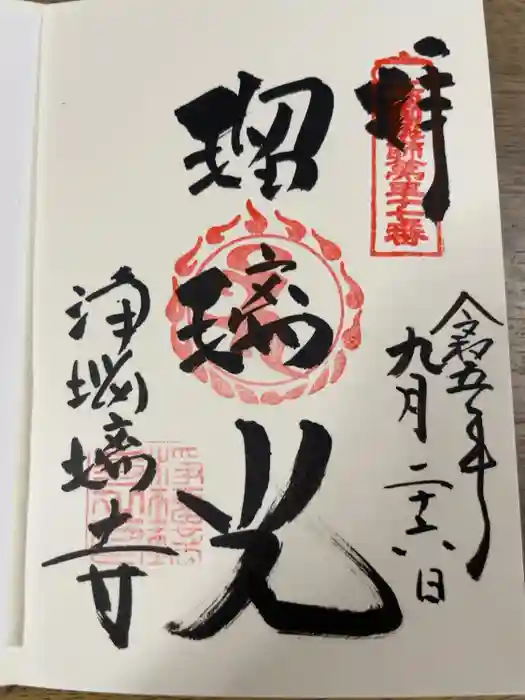 拝
令和五年
九月二十六日
瑠璃光
浄瑠璃寺